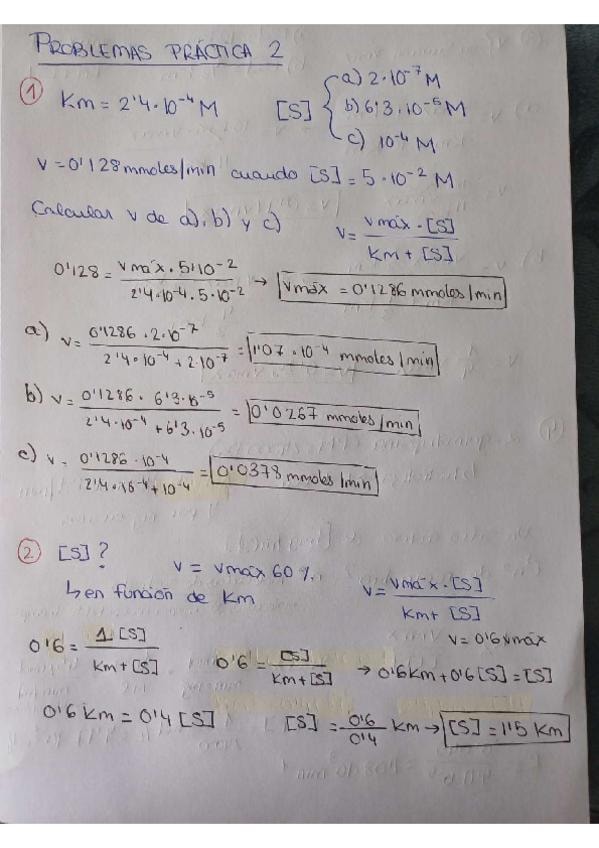 PROBLEMAS PRÁCTICA 2
① Km = 2'4·10⁻⁴ M [S] { a) 2·10⁻⁷ M
b) 6'3·10⁻⁵ M
c) 10⁻⁴ M
v = 0'128 mmoles/min cuando [S] = 5·10⁻² M
Calcular v de a), b) y c) v = vmáx · [S] / Km + [S]
0'128 = vmáx · 5·10⁻² / 2'4·10⁻⁴ · 5·10⁻² → vmáx = 0'1286 mmoles/min
a) v = 0'1286 · 2·10⁻⁷ / 2'4·10⁻⁴ + 2·10⁻⁷ = 1'07·10⁻⁴ mmoles/min
b) v = 0'1286 · 6'3·10⁻⁵ / 2'4·10⁻⁴ + 6'3·10⁻⁵ = 0'0267 mmoles/min
c) v = 0'1286 · 10⁻⁴ / 2'4·10⁻⁴ + 10⁻⁴ = 0'0378 mmoles/min
② [S]? v = vmáx 60 %
↳ en función de Km v = vmáx · [S] / Km + [S]
v = 0'6 vmáx
0'6 = 1 · [S] / Km + [S] 0'6 = [S] / Km + [S] → 0'6 Km + 0'6 [S] = [S]
0'6 Km = 0'4 [S] [S] = 0'6 / 0'4 Km → [S] = 1'5 Km